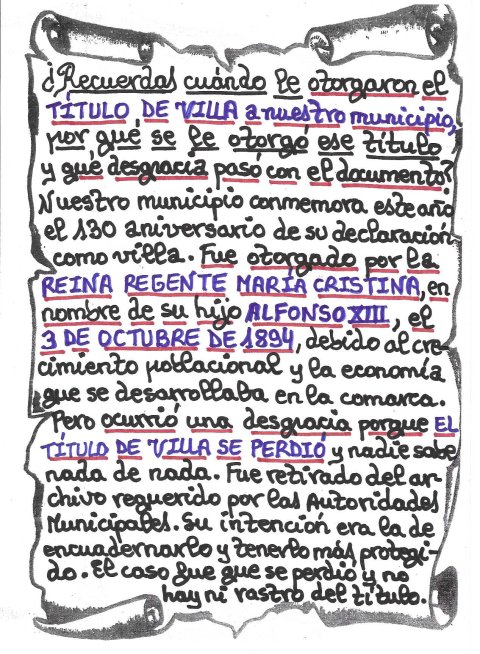 ¿Recuerdas cuándo le otorgaron el
TÍTULO DE VILLA a nuestro municipio,
por qué se le otorgó ese título
y qué desgracia pasó con el documento?
Nuestro municipio conmemora este año
el 130 aniversario de su declaración
como villa. Fue otorgado por la
REINA REGENTE MARÍA CRISTINA, en
nombre de su hijo ALFONSO XIII, el
3 DE OCTUBRE DE 1894, debido al cre-
cimiento poblacional y la economía
que se desarrollaba en la comarca.
Pero ocurrió una desgracia porque EL
TÍTULO DE VILLA SE PERDIÓ y nadie sabe
nada de nada. Fue retirado del ar-
chivo requerido por las Autoridades
Municipales. Su intención era la de
encuadernarlo y tenerlo más protegi-
do. El caso fue que se perdió y no
hay ni rastro del título.